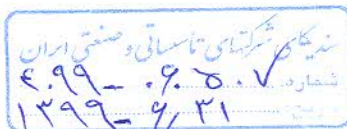 سندیکای شرکتهای تأسیساتی و صنعتی ایران
شماره ۴۰۹۹-۰۶۰۵۰۷
۱۳۹۹-۶/۳۱